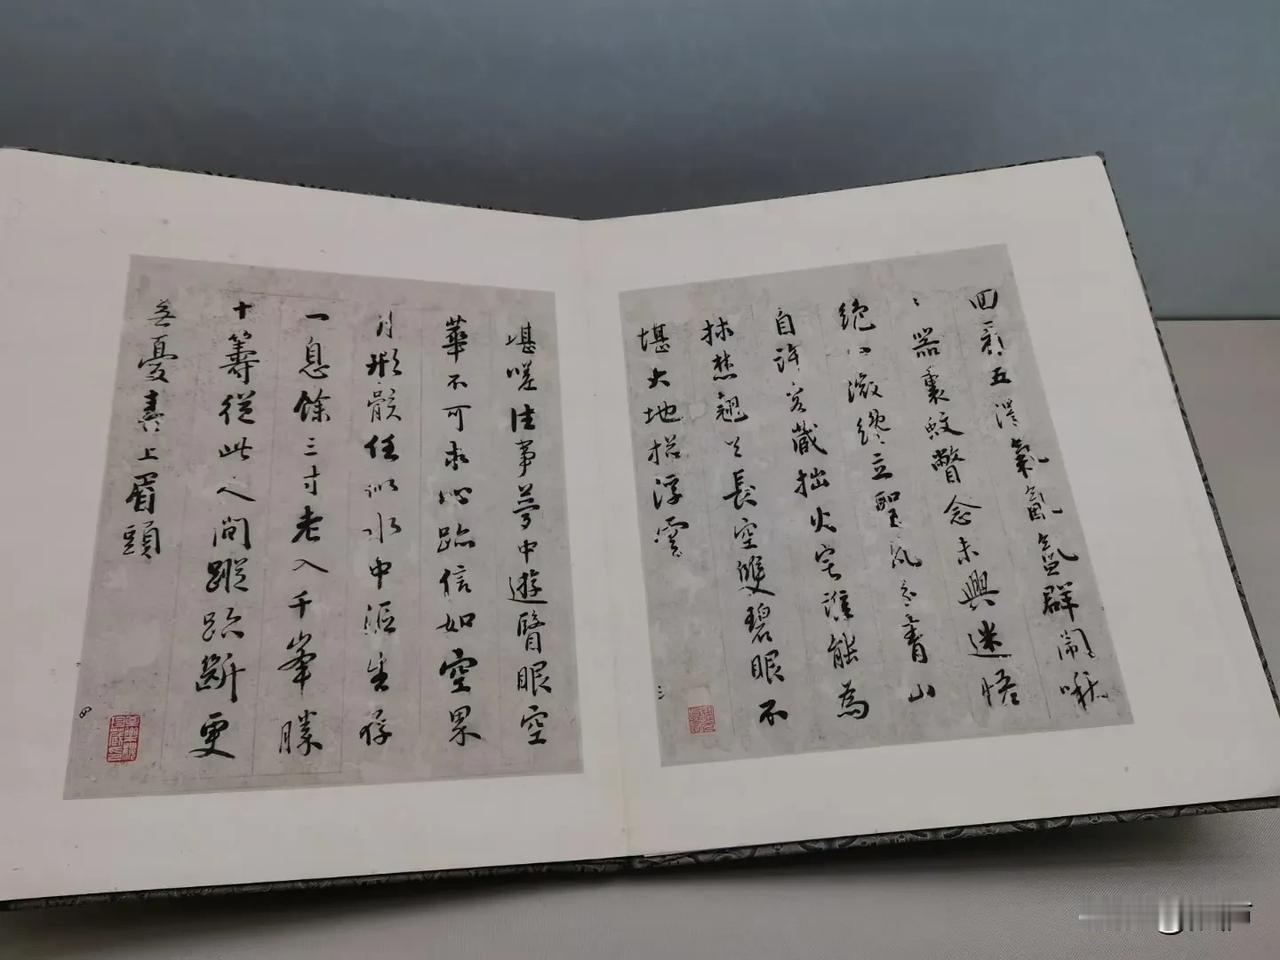 回看五濁氣氤氳群鬧啾
〻器裏蚊瞥念未興迷悟
絕微纔立聖凡分青山
自許容藏拙火宅誰能為
捄焚翹首長空雙碧眼不
堪大地搭浮雲
堪嗟往事夢中遊瞖眼空
華不可求心跡信如空界
月形骸任似水中漚生存
一息餘三寸老入千峯勝
十籌從此人間蹤跡斷更
無憂喜上眉頭